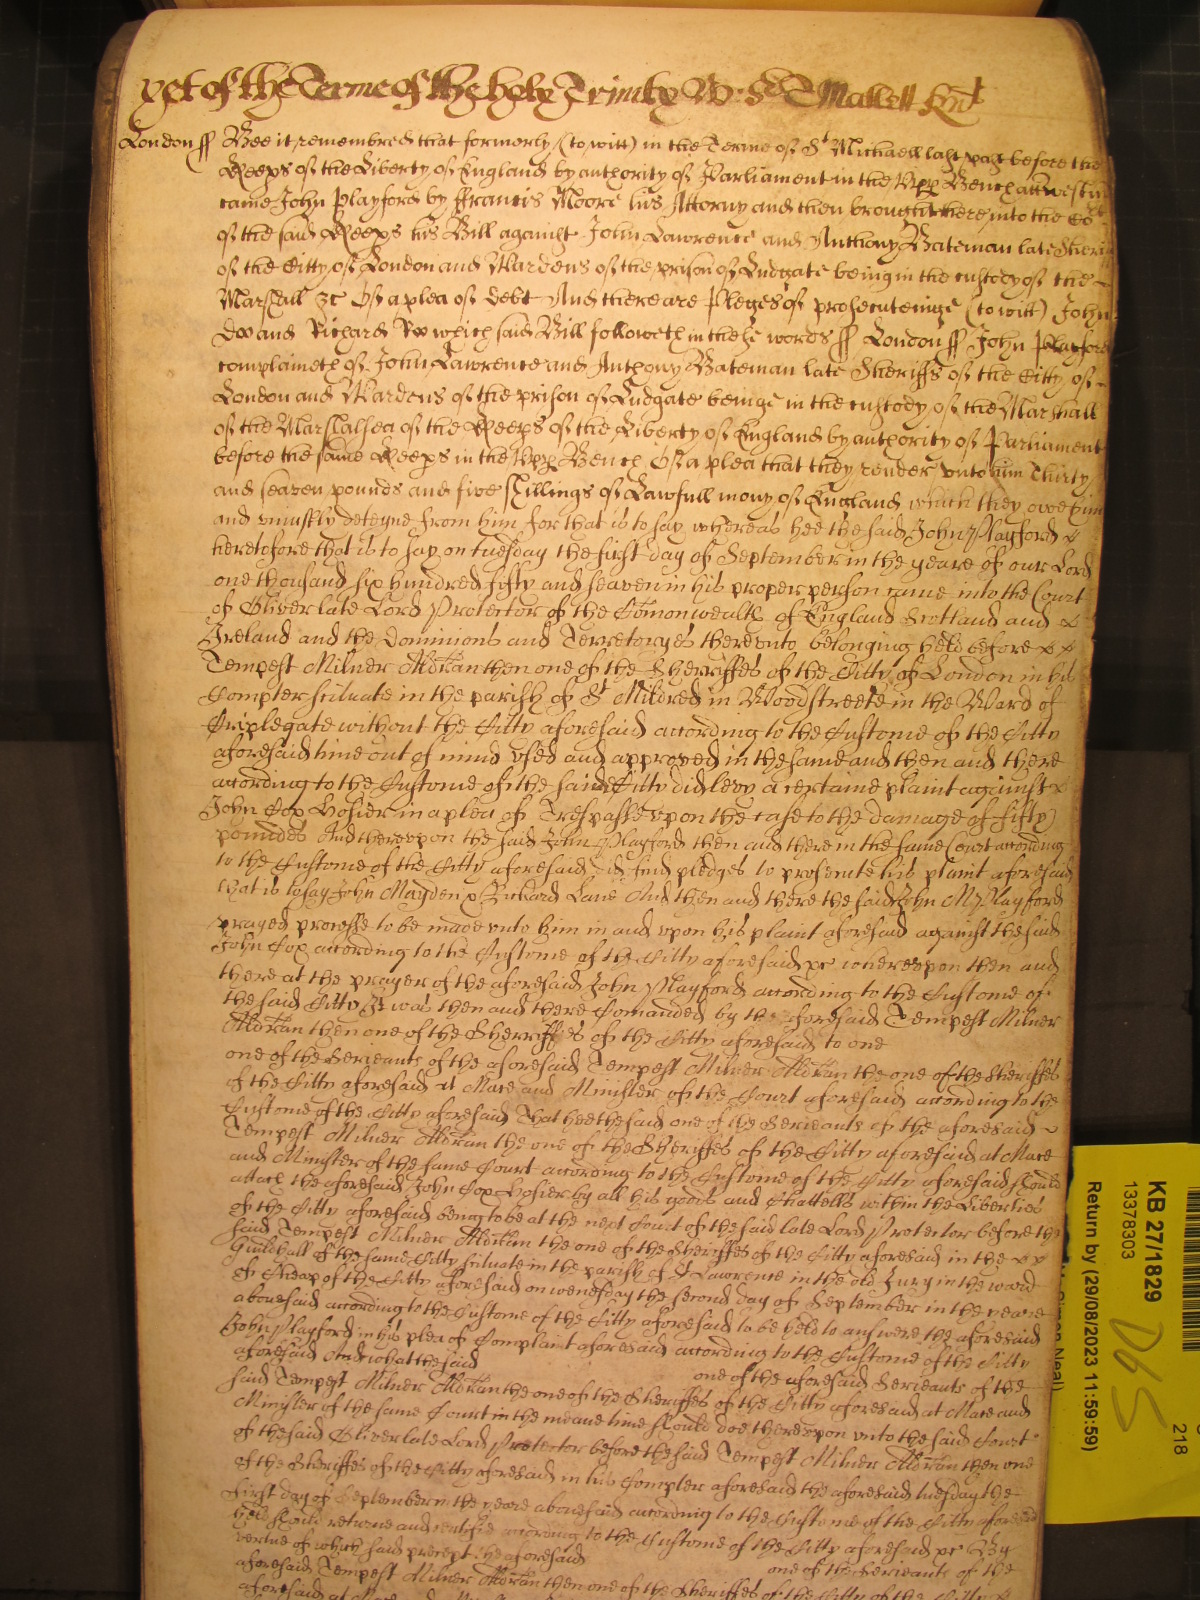 yet of the Terme of the holy Trinity W: S: T Mallett Knt
London ss Bee it remembred that formerly (to witt) in the Terme of St Michaell last past before the
Keeps of the Liberty of England by authority of Parliament in the Vpp Bench att Westm
came John Playford by ffrancis Moore his Attorny and then brought there into the Cot
of the said Keeps his Bill against John Lawrence and Anthony Bateman late Sheri
of the Citty of London and Wardens of the prison of Ludgate being in the custody of the
Marshall &c Of a plea of debt And there are Pleges of prosecuteinge (to witt) John
Dω and Richard Rω which said Bill followeth in these words ss London ss John Playford
complaineth of John Lawrence and Anthony Bateman late Sheriffs of the Citty of
London and Wardens of the prison of Ludgate beinge in the custody of the Marshall
of the Marshalsea of the Keeps of the Liberty of England by authority of Parliament
before the same Keeps in the Vpp Bench Of a plea that they render vnto him Thirty
and seaven pounds and five shillings of Lawfull mony of England which they owe him
and vniustly deteyne from him for that is to say whereas hee the said John Playford
heretofore that is to say on tuesday the first day of September in the yeare of our Lord
one thousand six hundred fifty and seaven in his proper person came into the Court
of Oliver late Lord Protector of the Comonwealth of England Scotland and
Ireland and the Dominions and Terretoryes therevnto belonging held before
Tempest Milner Aldran then one of the Sherriffes of the Citty of London in his
Compter scituate in the parish of St Mildred in Woodstreete in the Ward of
Criplegate without the Citty aforesaid according to the Custome of the Citty
aforesaid time out of mind vsed and approved in the same and then and there
according to the Custome of the said Citty did levy a certaine plaint against
John Cox Hosier in a plea of Trespasse vpon the case to the damage of fifty
poundes And therevpon the said John Playford then and there in the same Court according
to the Custome of the Citty aforesaid did find pledges to prosecute his plaint aforesaid
that is to say John Mayden & Richard Lane And then and there the said John Playford
prayed processe to be made vnto him in and vpon his plaint aforesaid against the said
John Cox according to the Custome of the Citty aforesaid &c wherevpon then and
there at the prayer of the aforesaid John Playford according to the Custome of
the said Citty It was then and there Comanded by the aforesaid Tempest Milner
Aldran then one of the Sherriffes of the Citty aforesaid to one
one of the Serieants of the aforesaid Tempest Milner Aldran the one of the Sheriffes
of the Citty aforesaid at Mace and Minister of the Court aforesaid according to the
Custome of the Citty aforesaid That hee the said one of the Serieants of the aforesaid
Tempest Milner Aldran the one of the Sheriffes of the Citty aforesaid at Mace
and Minister of the same Court according to the Custome of the Citty aforesaid should
attach the aforesaid John Cox Hosier by all his goods and Chattells within the Liberties
of the Citty aforesaid being to be at the next Court of the said late Lord Protector before the
said Tempest Milner Aldran the one of the Sheriffes of the Citty aforesaid in the
Guildhall of the same Citty scituate in the parish of St Lawrence in the old Jury in the ward
of Cheap of the Citty aforesaid on wensday the second day of September in the yeare
abovesaid according to the Custome of the Citty aforesaid to be held to answere the aforesaid
John Playford in his plea of Complaint aforesaid according to the Custome of the Citty
aforesaid And what the said one of the aforesaid Serieants of the
said Tempest Milner Aldran the one of the Sheriffes of the Citty aforesaid at Mace and
Minister of the same Court in the meane time should doe therevpon vnto the said Court
of the said Oliver late Lord Protector before the said Tempest Milner Aldran then one
of the Sheriffes of the Citty aforesaid in his Compter aforesaid the aforesaid tuesday the
first day of September in the yeare abovesaid according to the Custome of the Citty aforesaid
held should returne and certifie according to the Custome of the Citty aforesaid &c By
vertue of which said precept the aforesaid one of the Serieants of the
aforesaid Tempest Milner Aldran then one of the Sheriffes of the Citty of the Citty
aforesaid at Mace
KB 27/1829
13378303
Return by (29/08/2023 11:59:59)
218
D6 5